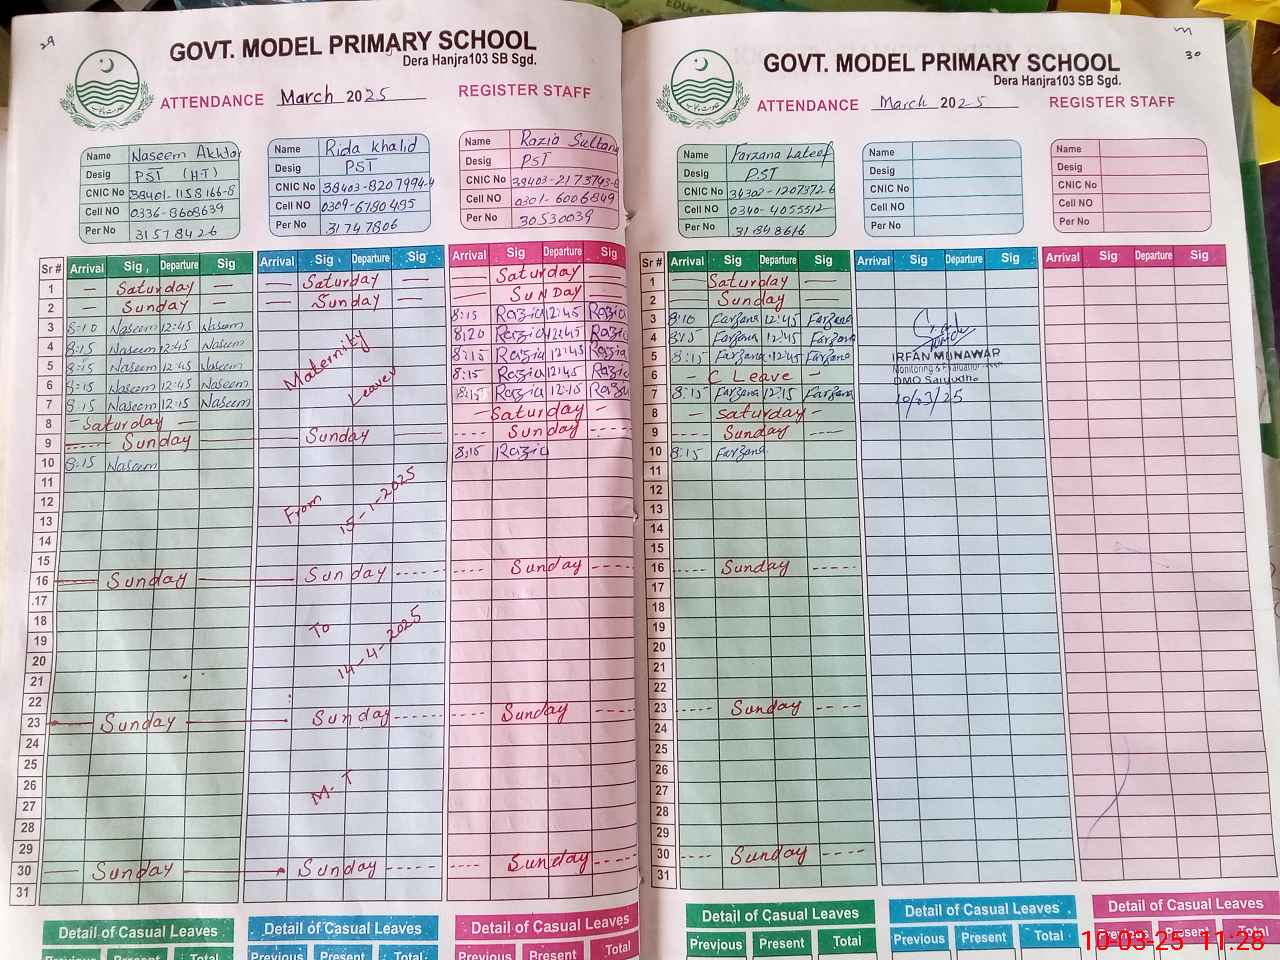 29
GOVT. MODEL PRIMARY SCHOOL
Dera Hanjra103 SB Sgd.
ATTENDANCE March 2025 REGISTER STAFF
Name Naseem Akhtar
Desig PST (H-T)
CNIC No 38401-1158166-8
Cell NO 0336-8608639
Per No 31578426
Name Rida Khalid
Desig PST
CNIC No 38403-8207994-4
Cell NO 0309-6780485
Per No 31747806
Name Razia Sultana
Desig PST
CNIC No 38403-2173743-6
Cell NO 0301-6006849
Per No 30530039
Sr # Arrival Sig. Departure Sig Arrival Sig. Departure Sig Arrival Sig Departure Sig
1 — Saturday — — Saturday — — Saturday —
2 — Sunday — — Sunday — — Sunday —
3 8:10 Naseem 12:45 Naseem 8:15 Razia 12:45 Razia
4 8:15 Naseem 12:45 Naseem 8:20 Razia 12:45 Razia
5 8:15 Naseem 12:45 Naseem 8:15 Razia 12:45 Razia
6 8:15 Naseem 12:45 Naseem 8:15 Razia 12:45 Razia
7 8:15 Naseem 12:15 Naseem 8:15 Razia 12:15 Razia
Maternity
Leave
8 — Saturday — — Saturday —
9 Sunday Sunday Sunday
10 8:15 Naseem 8:15 Razia
11
12
From 15-1-2025
13
14
15
16 Sunday Sunday Sunday
17
18
19
To
14-4-2025
20
21
22
23 Sunday Sunday Sunday
24
25
26
M-T
27
28
29
30 Sunday Sunday Sunday
31
Detail of Casual Leaves Detail of Casual Leaves Detail of Casual Leaves
Previous Present Total Previous Present Total Previous Present Total
30
GOVT. MODEL PRIMARY SCHOOL
Dera Hanjra103 SB Sgd.
ATTENDANCE March 2025 REGISTER STAFF
Name Farzana Lateef
Desig PST
CNIC No 34302-1207372-6
Cell NO 0340-4055512
Per No 31848616
Name
Desig
CNIC No
Cell NO
Per No
Name
Desig
CNIC No
Cell NO
Per No
Sr # Arrival Sig Departure Sig Arrival Sig Departure Sig Arrival Sig Departure Sig
1 Saturday
2 Sunday
3 8:10 Farzana 12:45 Farzana
4 8:15 Farzana 12:45 Farzana
5 8:15 Farzana 12:45 Farzana
6 - C Leave -
7 8:15 Farzana 12:15 Farzana
IRFAN MUNAWAR
Monitoring & Evaluation
DMO Sargodha
10/03/25
8 - Saturday -
9 Sunday
10 8:15 Farzana
11
12
13
14
15
16 Sunday
17
18
19
20
21
22
23 Sunday
24
25
26
27
28
29
30 Sunday
31
Detail of Casual Leaves Detail of Casual Leaves Detail of Casual Leaves
Previous Present Total Previous Present Total Previous Present Total
10-03-25 11:28